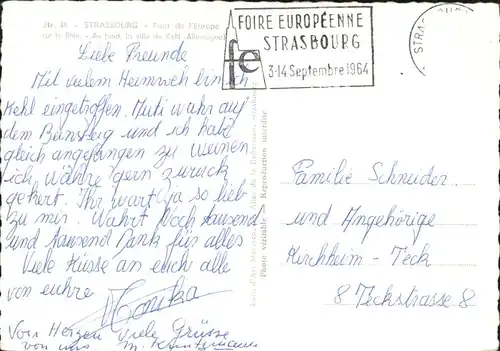 Str. 18 - STRASBOURG - Pont de l'Europe
sur le Rhin. - Au fond, la ville de Kehl (Allemagne)
FOIRE EUROPÉENNE
STRASBOURG
3-14 Septembre 1964
fe
STRASBOURG
Liebe Freunde
Mit vielem Heimweh bin ich
Kehl eingetroffen. Muti wahr auf
dem Bahnsteig und ich habe
gleich angefangen zu weinen
ich währe gern zurück
gekert. Ihr wart ja so lieb
zu mir. Wahrt Noch tausend
und tausend Dank für alles
Viele Küsse an euch alle
von euhre
Monika
Von Herzen viele Grüsse
von uns M.
Photo véritable - Reproduction interdite
Familie Schneider
und Angehörige
Kirchheim-Teck
8 Teckstrasse 8